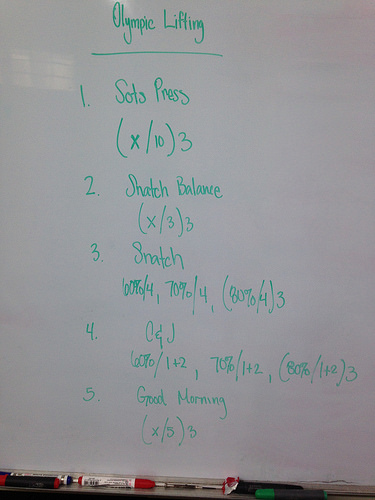 Olympic Lifting
1. Sots Press
(x/10)3
2. Snatch Balance
(x/3)3
3. Snatch
60%/4, 70%/4, (80%/4)3
4. C&J
60%/1+2, 70%/1+2, (80%/1+2)3
5. Good Morning
(x/5)3